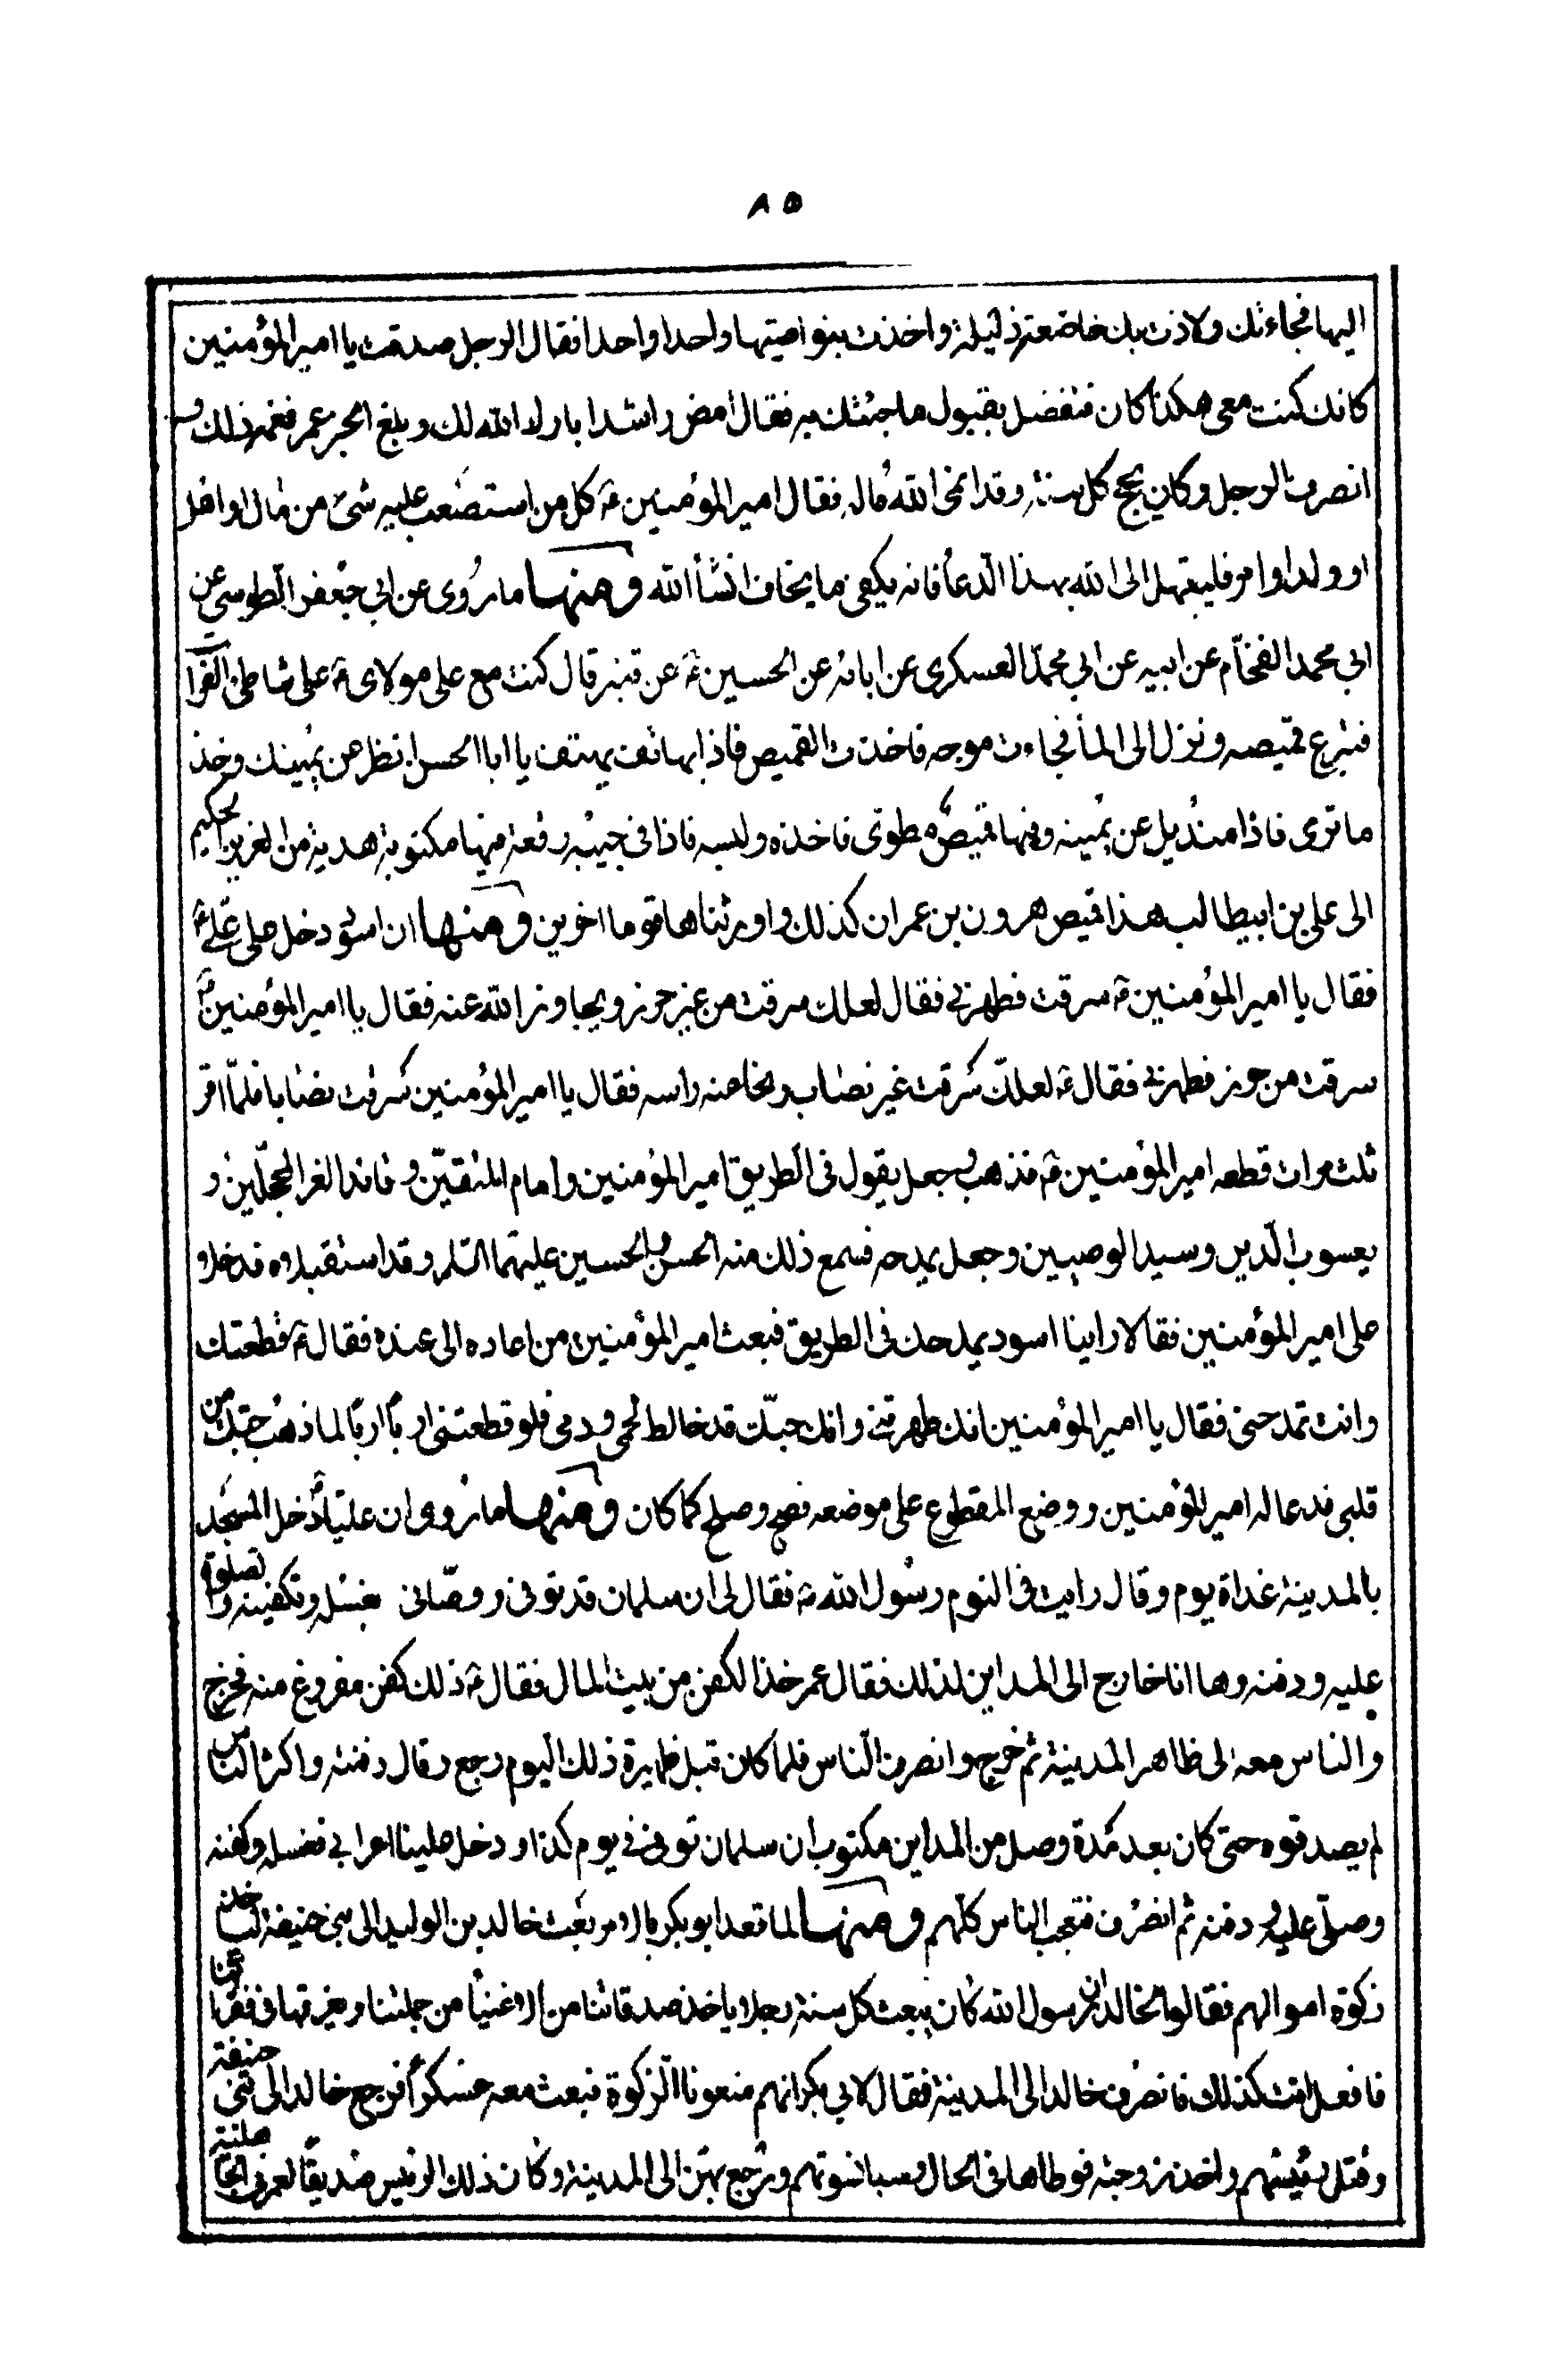 ٨٥
اليها فجاءتك ولاذت بك خاضعة ذليلة واخذت بنواصيتها واحدا واحدا فقال الرجل صدقت يا امير المؤمنين
كانك كنت معى هكذا كان فتفضل بقبول ما جئتك به فقال امض راشدا بارك الله لك وبلغ الخبر عمر فغمه ذلك و
انصرف الرجل وكان يحج كل سنة وقد انمى الله ماله فقال امير المؤمنين ع كل من استصعب عليه شئ من مال او اهل
او ولد او امر فليبتهل الى الله بهذا الدعا فانه يكفى ما يخاف انشأ الله ومنها ما روى عن ابي جعفر الطوسي عن
ابي محمد الفحّام عن ابيه عن ابي محمد العسكرى عن ابائه عن الحسين ع عن قنبر قال كنت مع على مولاى ع على شاطئ الفرات
فنزع قميصه ونزل الى الماٴ فجاءت موجه فاخذت القميص فاذا بهاتف يهتف يا ابا الحسن انظر عن يمينك وخذ
ما ترى فاذا منديل عن يمينه وفيها قميص مطوى فاخذه ولبسه فاذا فى جيبه رقعة فيها مكتوبة هدية من العزيز الحكيم
الى على بن ابيطالب هذا قميص هرون بن عمران كذلك واورثناها قوما اخرين ومنها ان اسود دخل على علي ع
فقال يا امير المؤمنين ع سرقت فطهرني فقال لعلك سرقت من غير حرز ويجاوز الله عنه فقال يا امير المؤمنين ع
سرقت من حرز فطهرني فقال ع لعلك سرقت غير نصاب ونحا عنه راسه فقال يا امير المؤمنين سرقت نصابا فلمّا اقر
ثلث مرات قطعه امير المؤمنين ع فذهب وجعل يقول فى الطريق امير المؤمنين وامام المتقين وقائد الغر المحجلين و
يعسوب الدين وسيد الوصيين وجعل يمدحه فسمع ذلك منه الحسن والحسين عليهما السلم وقد استقبلاه فدخلا
على امير المؤمنين فقالا راينا اسود يمدحك فى الطريق فبعث امير المؤمنين من اعاده الى عنده فقال ع قطعتك
وانت تمدحنى فقال يا امير المؤمنين انك طهرتنى وانك حبّك قد خالط لحمى ودمى فلو قطعتنى ارباً ارباً لما ذهب حبّك من
قلبى فدعا له امير المؤمنين ووضع المقطوع على موضعه فصح وصلح كما كان ومنها ما روى ان عليّا ع دخل المسجد
بالمدينة غداة يوم وقال رايت فى النوم رسول الله ص فقال لى ان سلمان قد توفى ووصّانى بغسله وتكفينه والصلوة
عليه ودفنه وها انا خارج الى المداين لذلك فقال عمر خذ الكفن من بيت المال فقال ع ذلك كفن مفروغ منه فخرج
والناس معه الى ظاهر المدينة ثم خرج وانصرف الناس فلما كان قبل ظهيرة ذلك اليوم رجع وقال دفنته واكثر الناس
لم يصدقوه حتى كان بعد مدة وصل من المداين مكتوب ان سلمان توفى فى يوم كذا ودخل علينا اعرابي فغسله وكفنه
وصلّى عليه ودفنه ثم انصرف فتعجب الناس كلهم ومنها لما قعد ابو بكر بالامر بعث خالد بن الوليد الى بنى حنيفة لياخذ
زكوة اموالهم فقالوا لخالد ان رسول الله كان يبعث كل سنة رجلا ياخذ صدقاتنا من الاغنيأ من جملتنا ويفرقها فى فقرائنا
فافعل انت كذلك فانصرف خالد الى المدينة فقال لابي بكر انهم منعونا الزكوة فبعث معه عسكراً فرجع خالد الى بنى حنيفة
وقتل رئيسهم واخذ زوجته فوطاها فى الحال وسبا نسوتهم ورجع بهن الى المدينة وكان ذلك الرئيس صديقاً لعمر فى الجاهلية